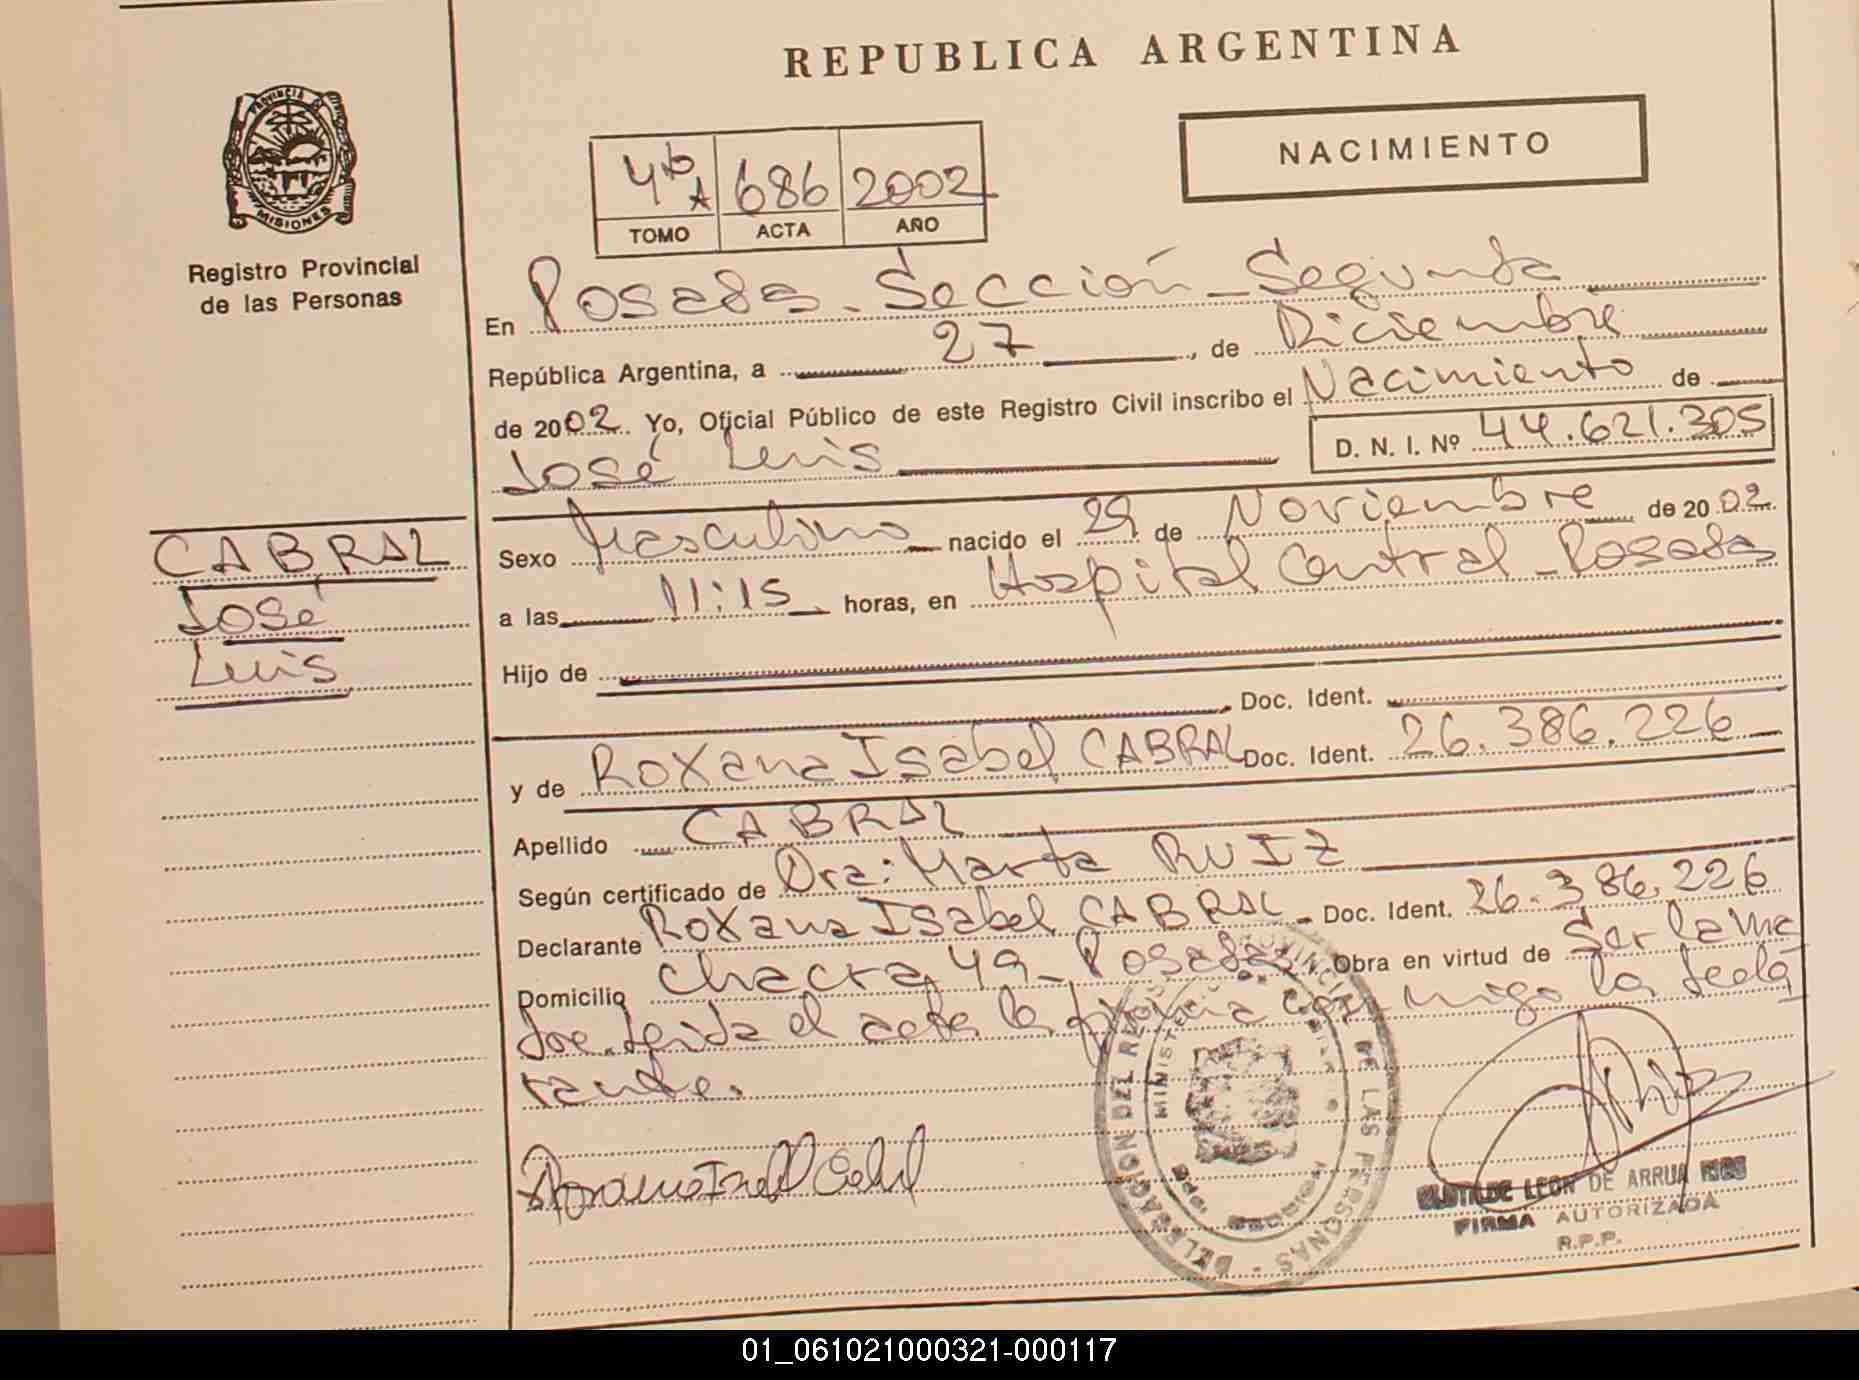 REPUBLICA ARGENTINA
NACIMIENTO
PROVINCIA D MISIONES
Registro Provincial
de las Personas
4to A 686 2002
TOMO ACTA AÑO
En Posadas - Sección - Segunda
República Argentina, a 27, de Diciembre
de 2002 Yo, Oficial Público de este Registro Civil inscribo el Nacimiento de
José Luis D. N. I. Nº 44.621.305
CABRAL
José
Luis
Sexo Masculino nacido el 29 de Noviembre de 2002
a las 11:15 horas, en Hospital Central - Posadas
Hijo de
Doc. Ident.
y de Roxana Isabel CABRAL Doc. Ident. 26.386.226
Apellido CABRAL
Según certificado de Dra: Marta RUIZ
Declarante Roxana Isabel CABRAL - Doc. Ident. 26.386.226
Domicilio Chacra 49 - Posadas. Obra en virtud de Ser la ma
dre. Leida el acta la firma conmigo la decla
rante.
Roxana Isabel Cabral
DELEGACION DEL REGISTRO PROVINCIAL DE LAS PERSONAS
MINISTERIO
2da. SECCION
CLOTILDE LEON DE ARRUA RIOS
FIRMA AUTORIZADA
R.P.P.
01_061021000321-000117